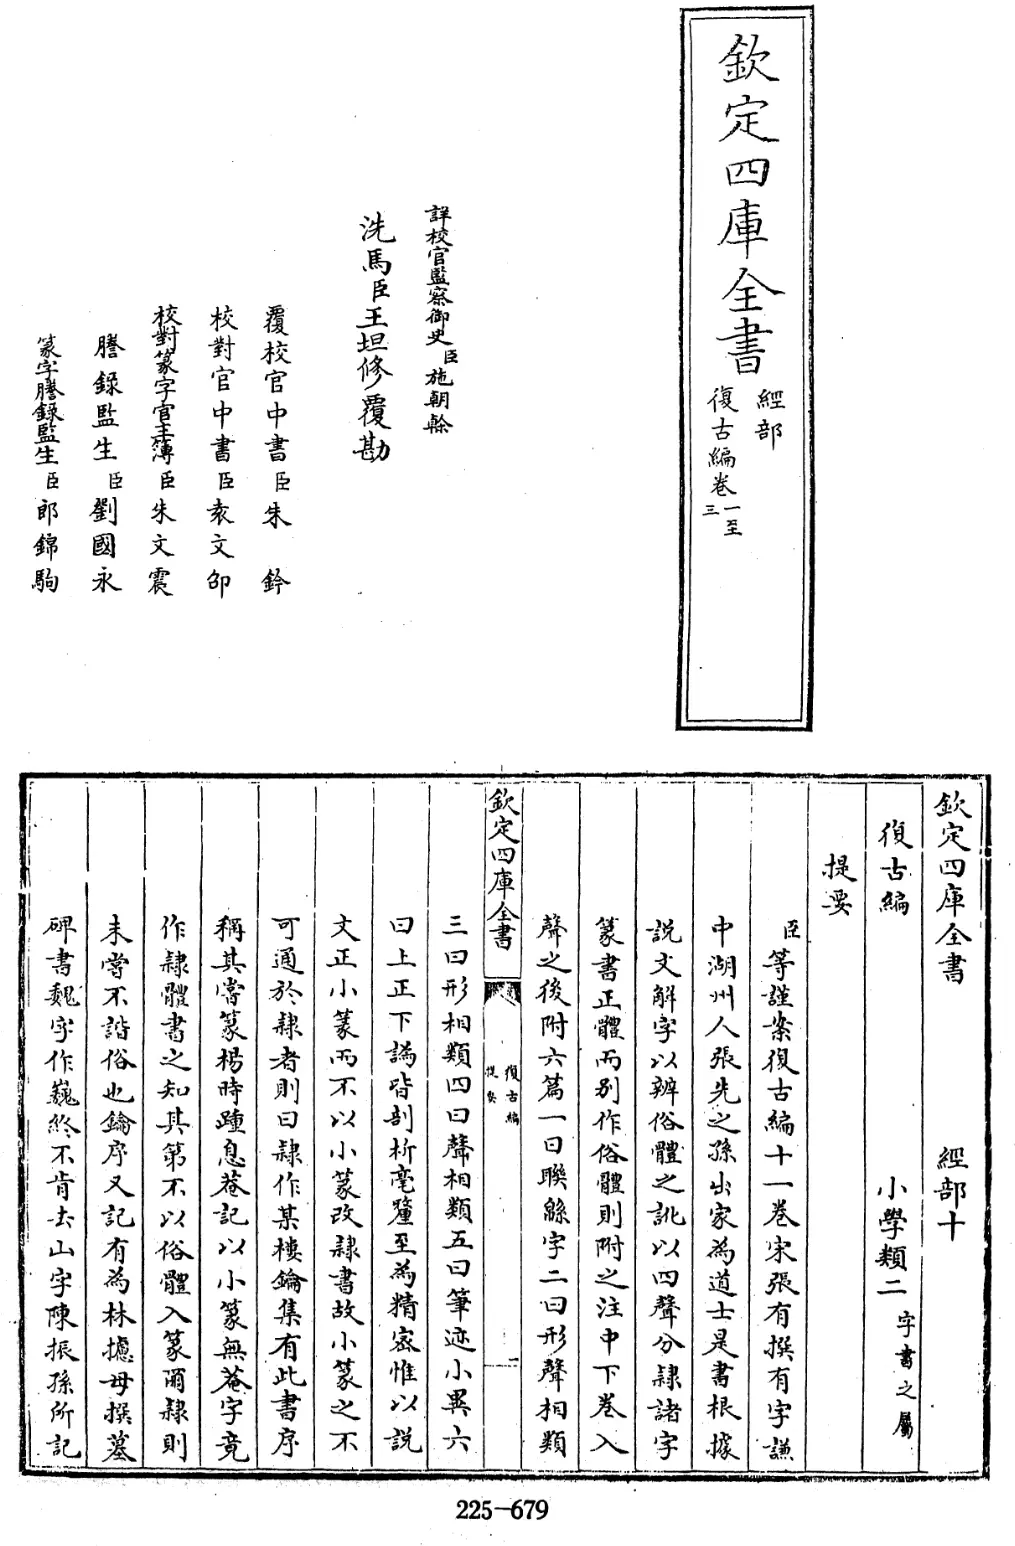 欽定四庫全書
經部
復古編卷一至
三
詳校官監察御史臣施朝榦
洗馬臣王坦修覆勘
覆校官中書臣朱鈐
校對官中書臣袁文邵
校對篆字官主簿臣朱文震
謄錄監生臣劉國永
篆字謄錄監生臣郎錦騊
欽定四庫全書 經部十
復古編 小學類二字書之屬
提要
臣等謹案復古編十一卷宋張有撰有字謙
中湖州人張先之孫出家為道士是書根據
說文解字以辨俗體之訛以四聲分隸諸字
篆書正體而别作俗體則附之注中下卷入
聲之後附六篇一曰聯緜字二曰形聲相類
欽定四庫全書
復古編
提要
一
三曰形相類四曰聲相類五曰筆迹小異六
曰上正下譌皆剖析毫釐至為精密惟以說
文正小篆而不以小篆改隸書故小篆之不
可通於隸者則曰隸作某樓鑰集有此書序
稱其嘗篆楊時踵息菴記以小篆無菴字竟
作隸體書之知其第不以俗體入篆爾隸則
未嘗不諧俗也鑰序又記有為林攄母撰墓
碑書魏字作巍終不肯去山字陳振孫所記
225-679